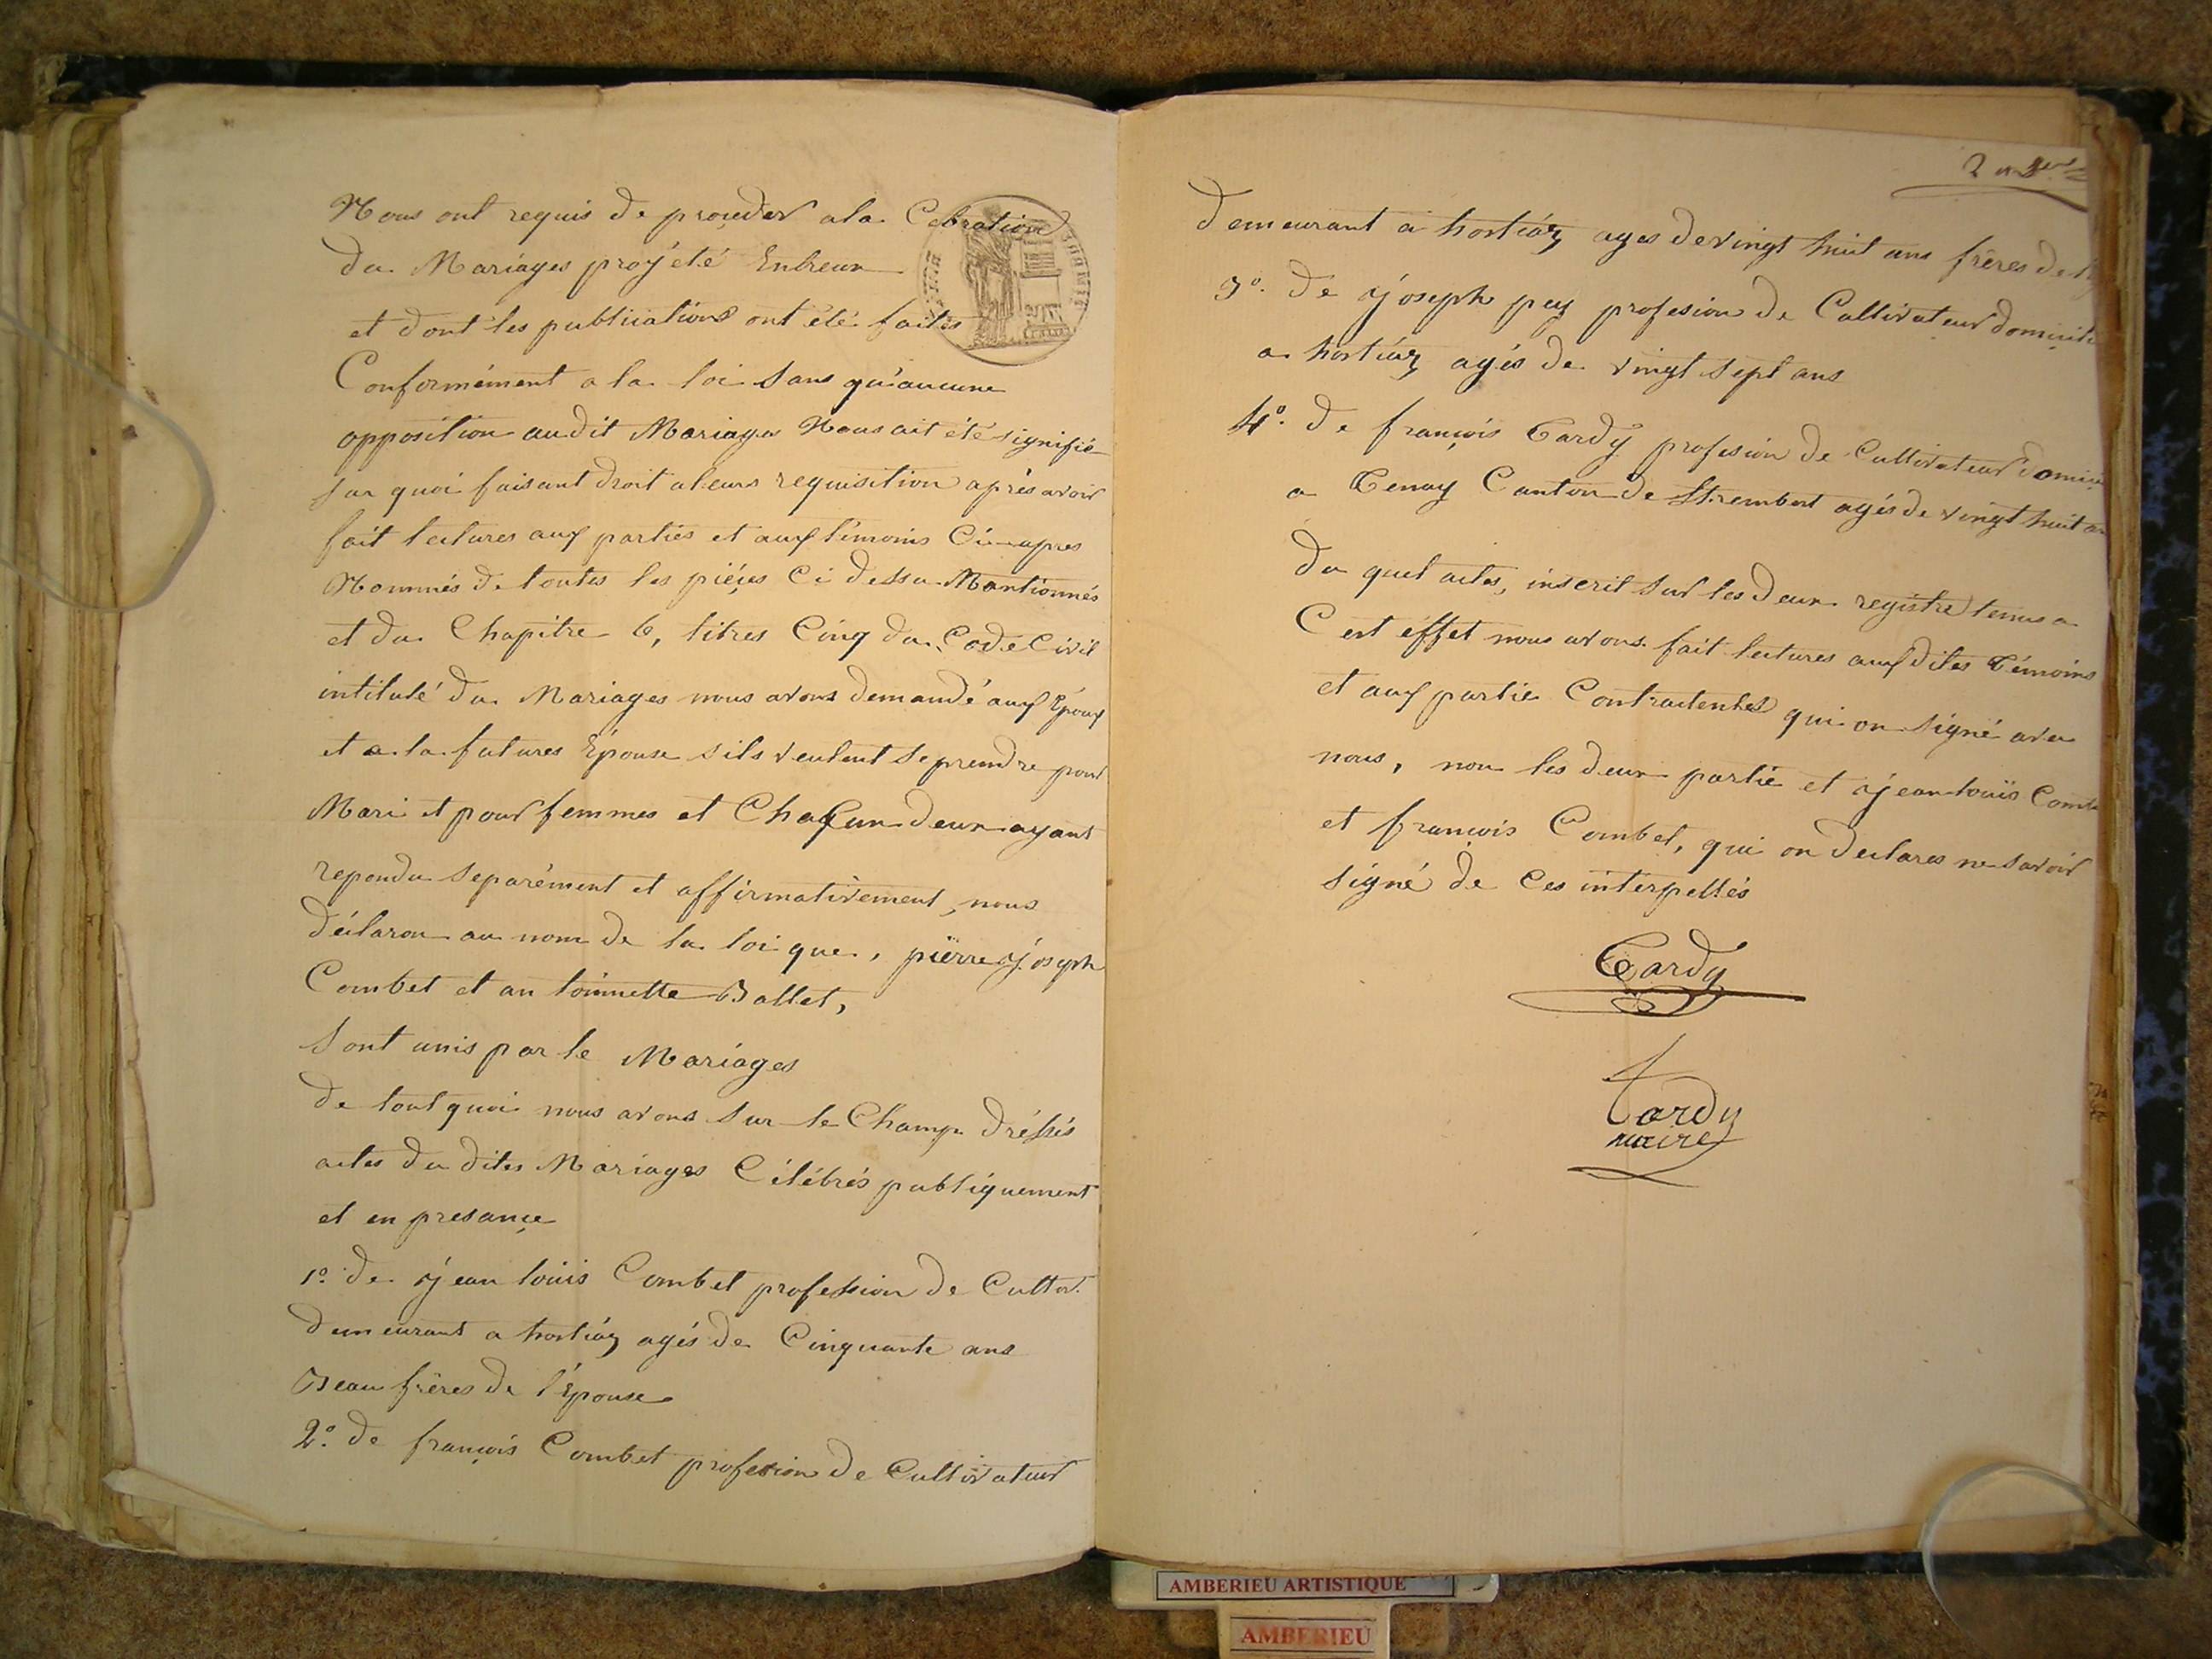 Nous ont requis de proçéder a la Cebration
du Mariages proyété Entreux
et dont les publications ont été faites
Conformément a la loi sans qu'aucune
opposition audit Mariages Nous ait été signifié
sur quoi faisant droit a leurs requisition après avoir
fait lectures aux parties et aux témoins Ci-apres
Nommés de toutes les piéçes Ci dessu Mantionnés
et du Chapitre 6, titres Cinq du Code Civil
intitulé du Mariages nous avons demandé aux Époux
et a la futures Épouse s'ils veulent se prendre pour
Mari et pour femmes et Chaqun deux ayant
repondu Separément et affirmativement, nous
déclaron au nom de la loi que, pièrre Joseph
Combet et an toinnette Ballet,
Sont unis par le Mariages
de tout quoi nous avons Sur le Champ dréssés
actes du dites Mariages Célébrés publiquement
et en presançe
1º de Jean louis Combet profession de Cultor.
demeurant a hostiáz agés de Cinquante ans
Beau frères de l'Épouse
2º de françois Combet profesion de Cultivateur
2 n
demeurant a hostiáz ages de vingt huit ans frères de
3º. de Joseph pey profesion de Cultivateur domicili
a hostiáz agés de vingt sept ans
4º. de françois Tardy profesion de Cultivateur domici
a Tenay Canton de St. rembert agés de vingt huit an
du quel actes, inscrit sur les deux registre tenus a
C est éffet nous avons fait lectures aux dites Témoins
et aux partie Contractentes qui on signé avec
nous, non les deux partie et Jean louis Combe
et françois Combet, qui on declares ne savoir
signé de Ces interpellés
Tardy
Tardy
maire
AMBERIEU ARTISTIQUE
AMBERIEU